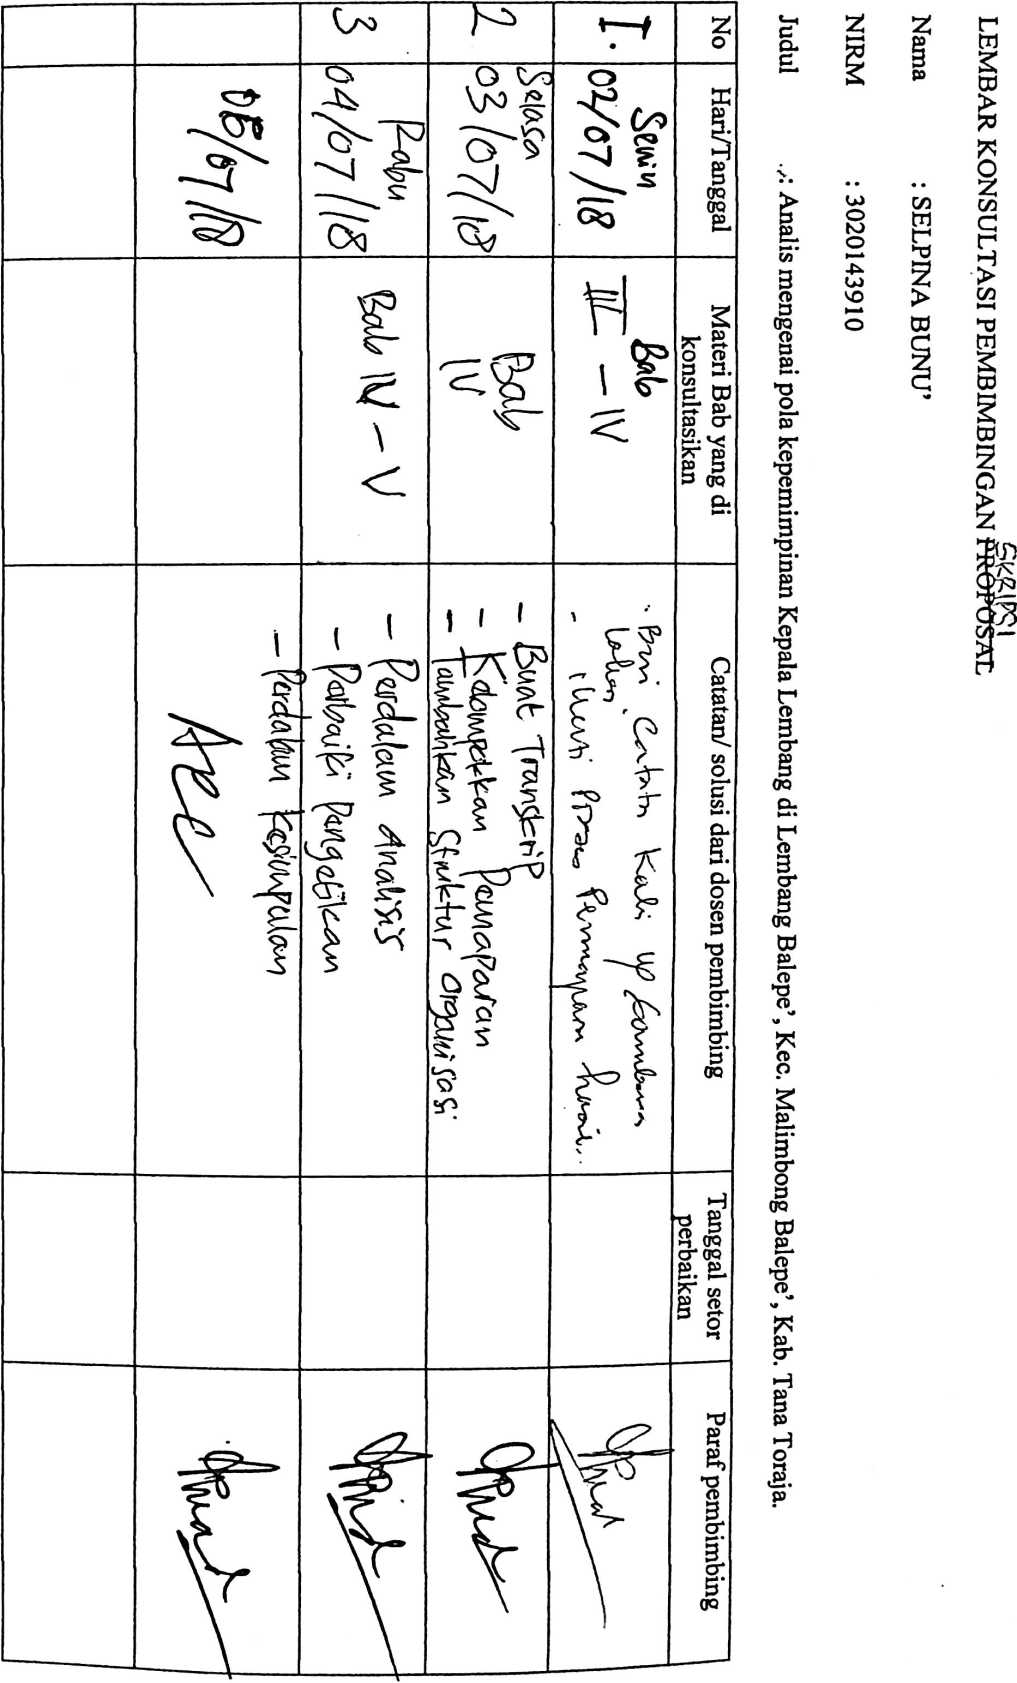 LEMBAR KONSULTASI PEMBIMBINGAN PROPOSAL SKRIPSI
Nama : SELPINA BUNU'
NIRM : 3020143910
Judul : Analis mengenai pola kepemimpinan Kepala Lembang di Lembang Balepe', Kec. Malimbong Balepe', Kab. Tana Toraja.
No Hari/Tanggal Materi Bab yang di konsultasikan Catatan/ solusi dari dosen pembimbing Tanggal setor perbaikan Paraf pembimbing
I. Senin
02/07/18
Bab
III - IV
Catatn Kali
2 Selasa
03/07/18
Bab
IV
- Buat Transkrip
- Kelompokkan Pemaparan
- Tambahkan Struktur organisasi
3 Rabu
04/07/18
Bab IV - V
- Perdalam Analisis
- Perbaiki Pengetikan
- Perdalam Kesimpulan
/07/18
Acc